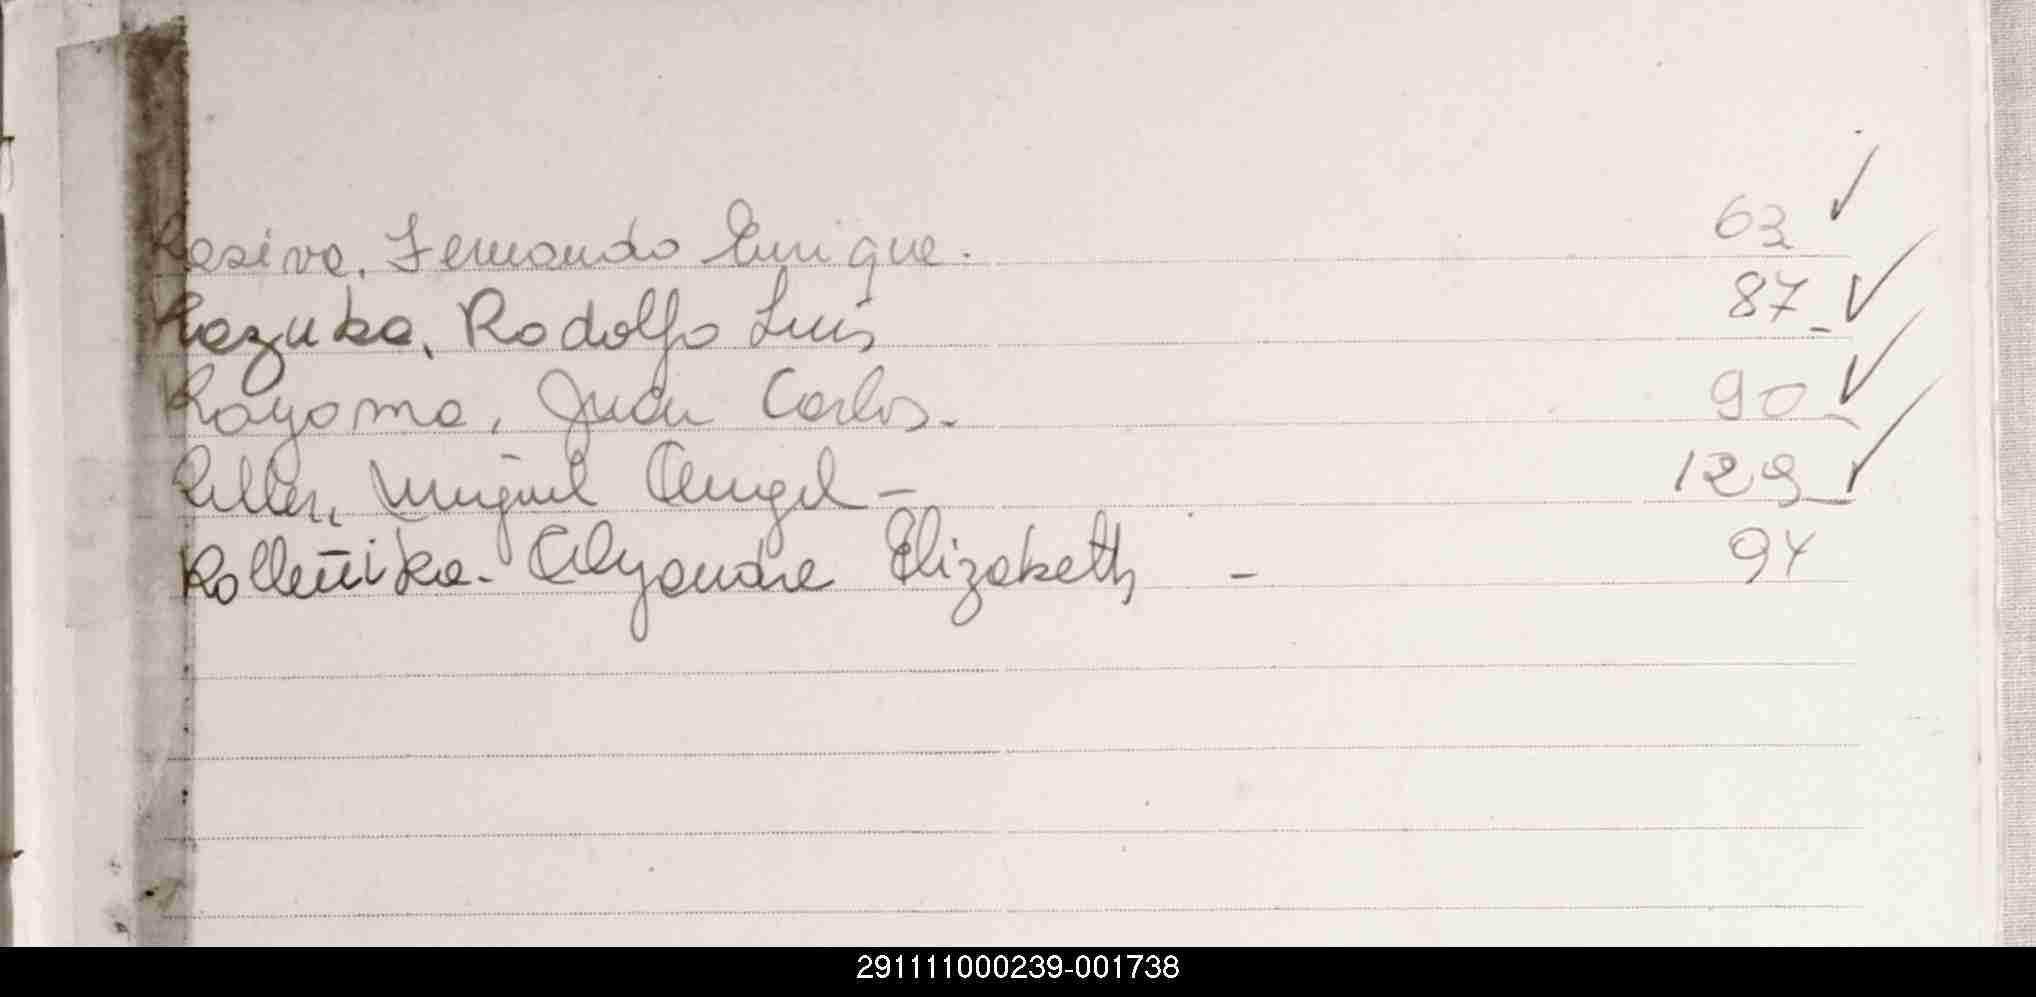 Kasiva, Fernando Enrique. 63 ✓
Kazuba, Rodolfo Luis 87 - ✓
Kayama, Juan Carlos. 90 - ✓
Keller, Miguel Angel - 129 - ✓
Alejandra Elizabeth - 94
291111000239-001738